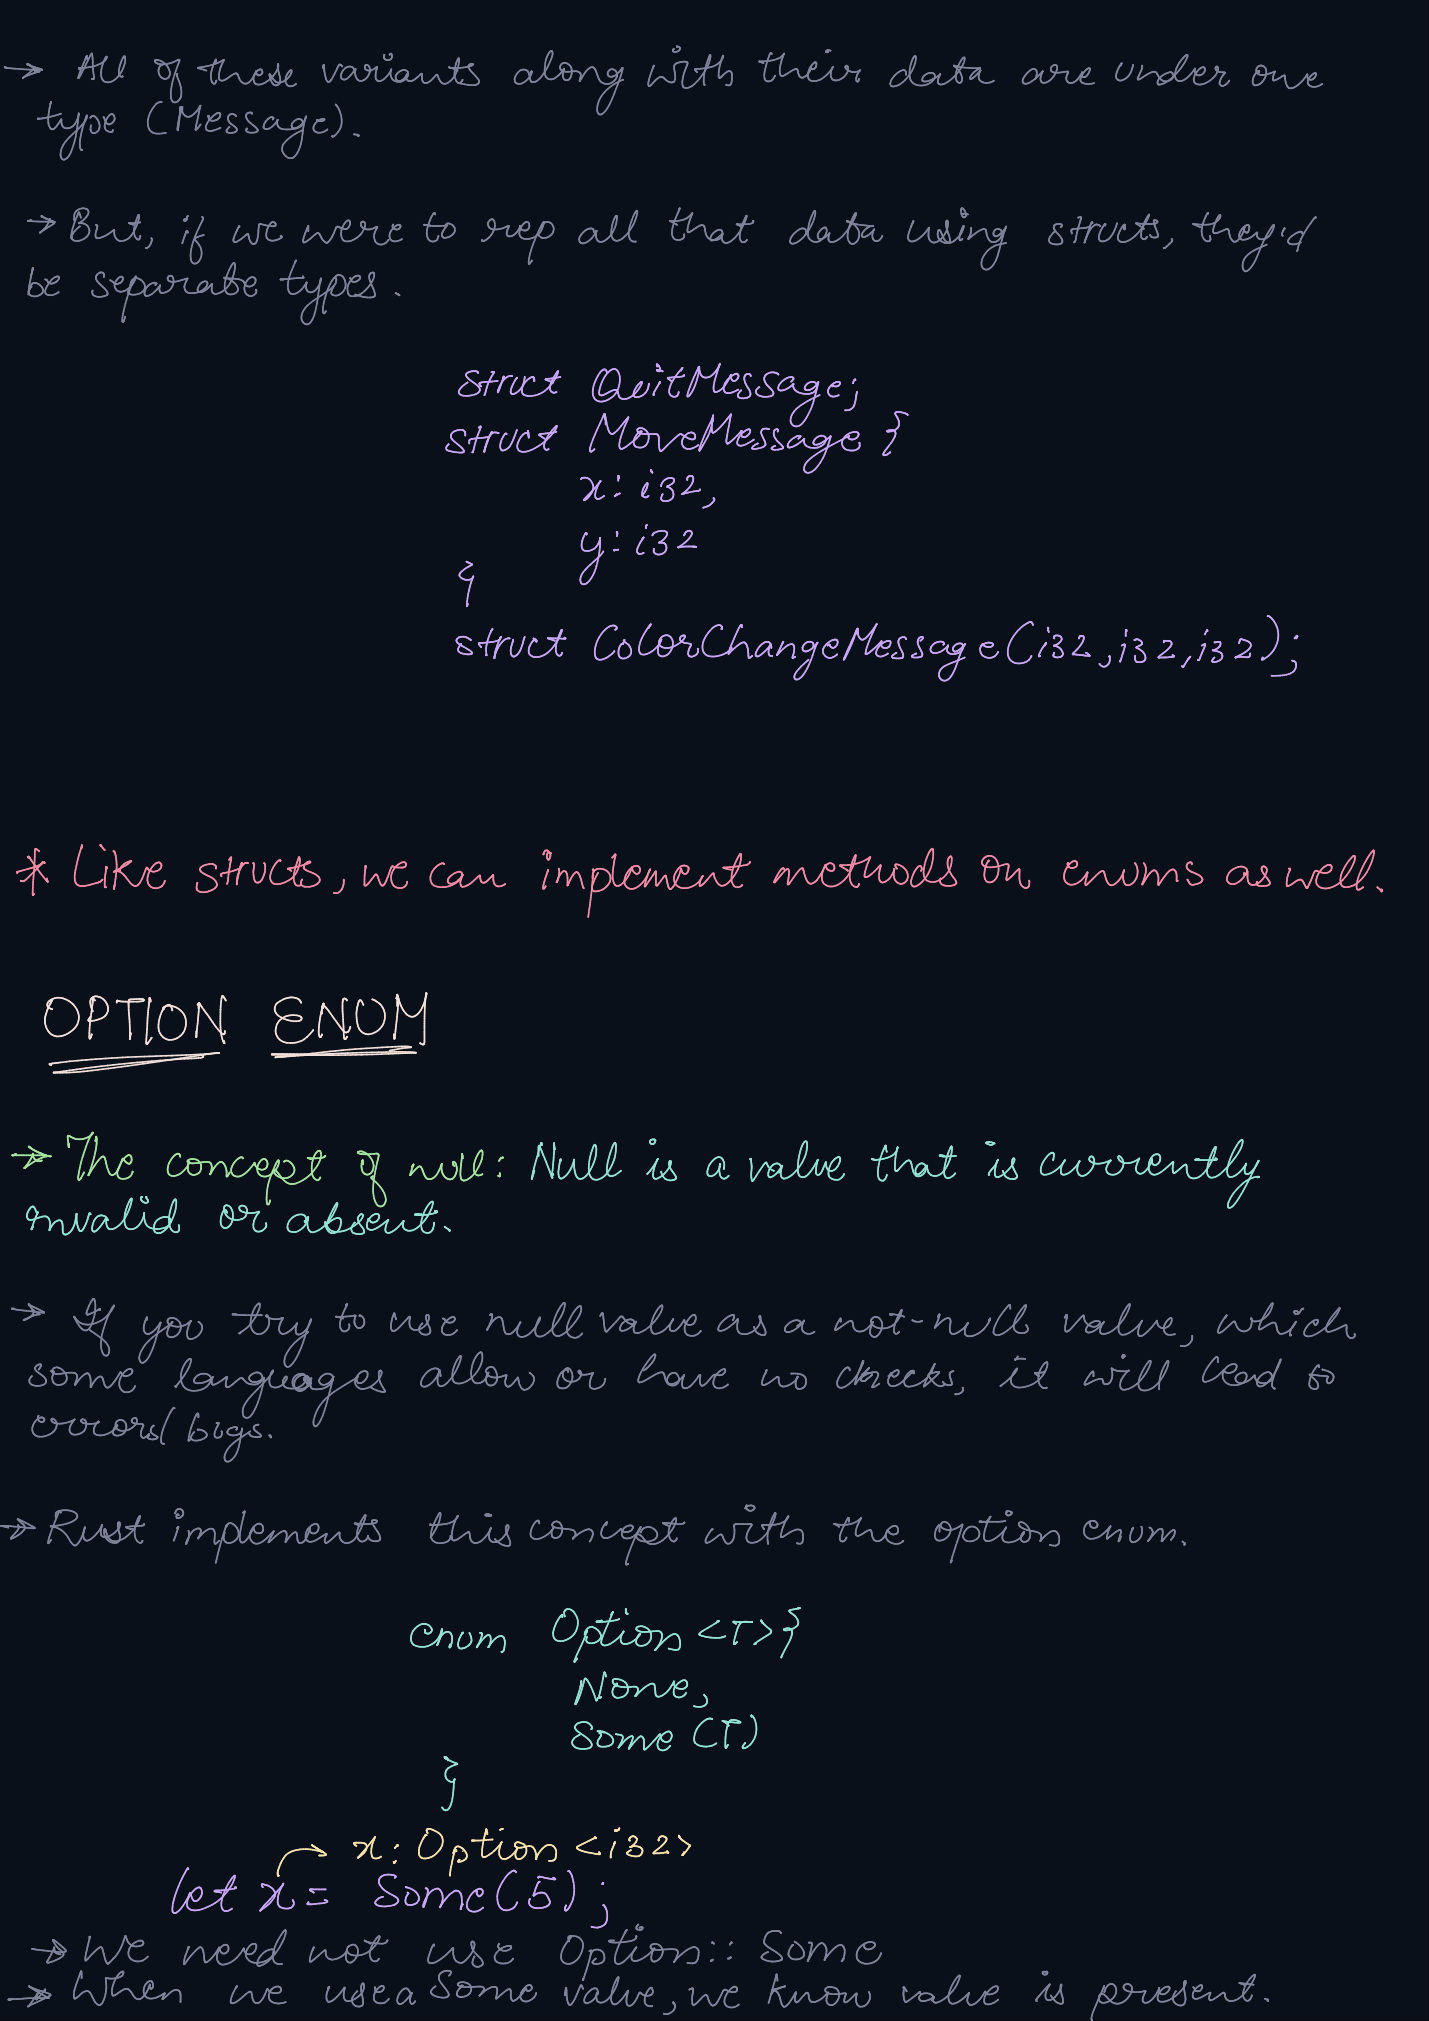 → All of these variants along with their data are under one
type (Message).
→ But, if we were to rep all that data using structs, they'd
be separate types.
struct QuitMessage;
struct MoveMessage {
x: i32,
y: i32
}
struct ColorChangeMessage(i32,i32,i32);
* Like structs, we can implement methods on enums as well.
OPTION ENUM
→ The concept of null: Null is a value that is currently
invalid or absent.
→ If you try to use null value as a not-null value, which
some languages allow or have no checks, it will lead to
errors/bugs.
→ Rust implements this concept with the option enum.
enum Option <T>{
None,
Some (T)
}
→ x: Option <i32>
let x = Some(5);
→ We need not use Option:: Some
→ When we use a Some value, we know value is present.